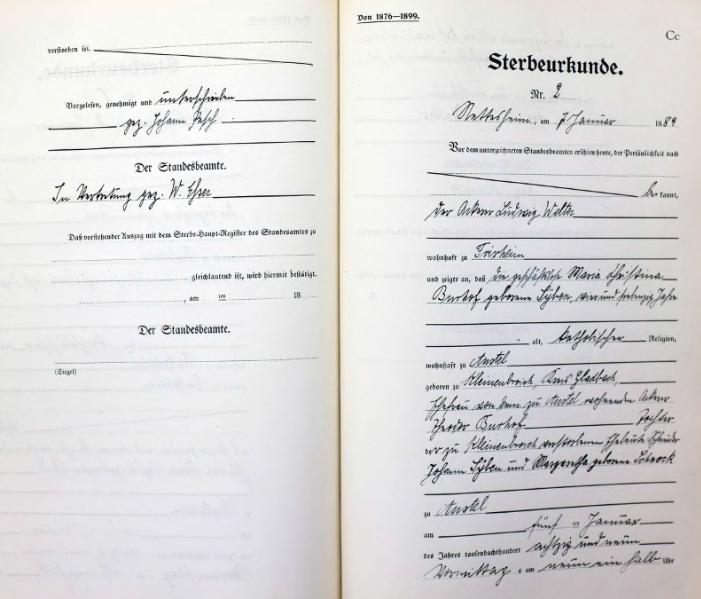 verstorben sei.
Vorgelesen, genehmigt und unterschrieben
gez. Johann Pesch
Der Standesbeamte.
In Vertretung gez. W. Esser
Daß vorstehender Auszug mit dem Sterbe-Haupt-Register des Standesamtes zu
gleichlautend ist, wird hiermit bestätigt.
, am ten 18
Der Standesbeamte.
(Siegel)
Von 1876—1899.
Cc
Sterbeurkunde.
Nr. 2
Nettesheim, am 7 Januar 1889
Vor dem unterzeichneten Standesbeamten erschien heute, der Persönlichkeit nach
be kannt,
der Ackerer Ludwig
wohnhaft zu
und zeigte an, daß die geschäftslose Maria Christina
Burhof geborene Syben, vierundsiebenzig Jahre
alt, katholischer Religion,
wohnhaft zu Anstel
geboren zu Kleinenbroich, Kreis Gladbach,
Ehefrau von dem zu Anstel wohnenden Ackerer
Theodor Burhof Tochter
der zu Kleinenbroich verstorbenen Eheleute
Johann Syben und Margaretha geborene Schrock
zu Anstel
am fünf ten Januar
des Jahres tausendachthundert achtzig und neun
Vormittags um neun ein halb Uhr